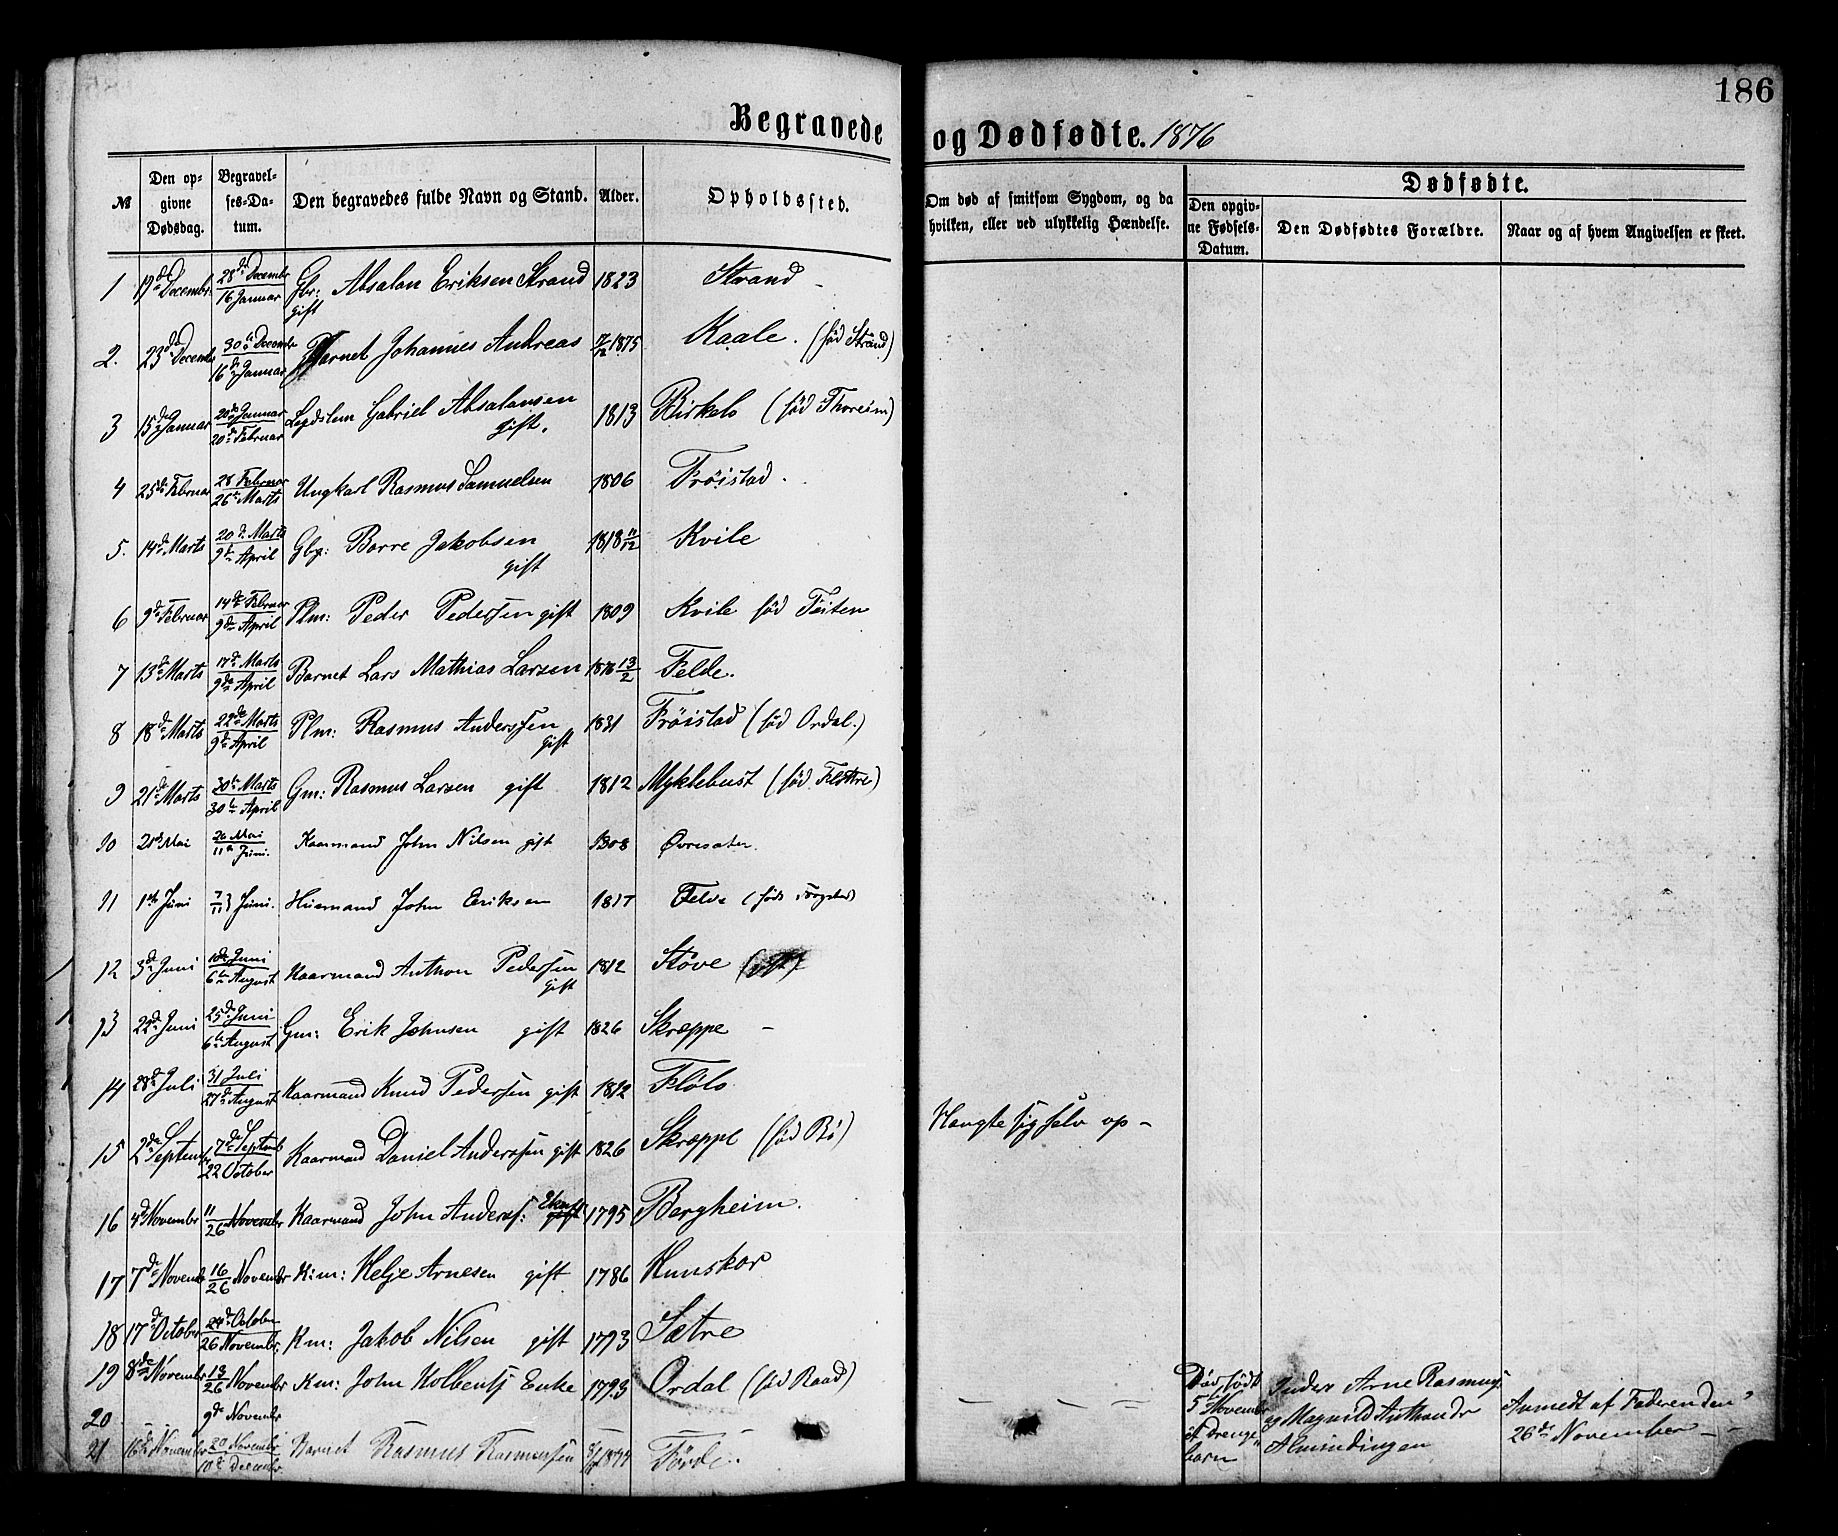 186
Begravede og Dødfødte. 1876
№ Den opgivne Dødsdag. Begravelses-Datum. Den begravedes fulde Navn og Stand. Alder. Opholdssted. Om død af smitsom Sygdom, og da hvilken, eller ved ulykkelig Hændelse. Dødfødte.
Den opgivne Fødsels-Datum. Den Dødfødtes Forældre. Naar og af hvem Angivelsen er skeet.
1 17de Decembr. 28de Decembr 16 Januar Gbr: Absalon Eriksen Strand gift 1823 Strand –
2. 23de Decembr 30te Decembr 16de Januar Barnet Johannes Andreas 1875 Kaale. (fød Strand)
3 15de Januar 20de Januar 20de Februar Lægdslem Gabriel Absalonsen gift. 1813 Birkelo (fød Thoreim)
4 25de Februar 28 Februar 26de Marts Ungkarl Rasmus Samuelsen 1806 Frøistad.
5. 14de Marts 20de Marts 9de April Gbr: Borre Jakobsen gift 1818 11/12 Kvile
6 9de Februar 14de Februar 9de April Plm: Peder Pedersen gift 1809 Kvile fød Teiten
7 13de Marts 17de Marts 9de April Barnet Lars Mathias Larsen 1876 13/2 Felde.
8 18de Marts 22de Marts 9de April Plm: Rasmus Anderssen gift 1831 Frøistad (fød Ordal.)
9 21de Marts 30te Marts 30te April Gm: Rasmus Larsen gift 1812 Myklebust (fød Flottre)
10 21de Mai 26 Mai 11te Juni. Kaarmand John Nilsen gift 1808 Øvresæter.
11 1ste Juni 7/11 Juni. Huusmand John Eriksen 1817 Felde (født
12 3de Juni 10de Juni 6te August Kaarmand Anthon Pedersen gift 1812 Støve
13 22de Juni 25de Juni 6te August Gm: Erik Johnsen gift 1826 Skræppe –
14 28de Juli 31 Juli 27de August Kaarmand Knud Pedersen gift 1812 Flølo
15 2de Septembr 17de Septemb 22 October Kaarmand Daniel Anderssen gift 1826 Skræppe (fød Bø) Hængte sig selv op –
16 4de Novembr 11/26 Novembr Kaarmand John Anderss: gift 1795 Bergheim.
17 7de Novemb 16/26 Novembr Km: Helje Arnesen gift 1786 Hunskor
18 17de October 24de October 26 Novembr. Km: Jakob Nilsen gift 1793 Sætre
19 8de Novembr 13/26 Novembr Km: John Kolbents Enke 1793 Ordal (fød Raad)
20 9de Novembr – – – Dødfødt 5 Novembr et Drengebarn Inders Arne Rasmuss: og Magnild Anthondr Almindingen Anmedt af Faderen den 26de November – –
21 16de Novembr 20 Novembr 10de Decembr. Barnet Rasmus Rasmussen 1874 Førde.